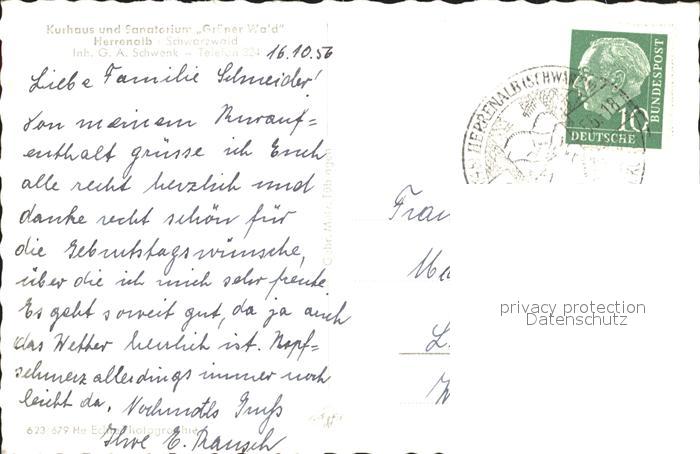 Kurhaus und Sanatorium „Grüner Wald"
Herrenalb - Schwarzwald
Inh. G. A. Schwenk - Telefon 324
16.10.56
Liebe Familie Schneider!
Von meinem Kurauf=
enthalt grüsse ich Euch
alle recht herzlich und
danke recht schön für
die Geburtstagswünsche,
über die ich mich sehr freute
Es geht soweit gut, da ja auch
das Wetter herrlich ist. Kopf=
schmerz allerdings immer noch
leicht da. Nochmals Gruß
Ihre E. Rausch
623 679 He Echte Photographie
HERRENALB (SCHWARZW
10
DEUTSCHE
BUNDESPOST
Frau
Ma
L.
privacy protection
Datenschutz